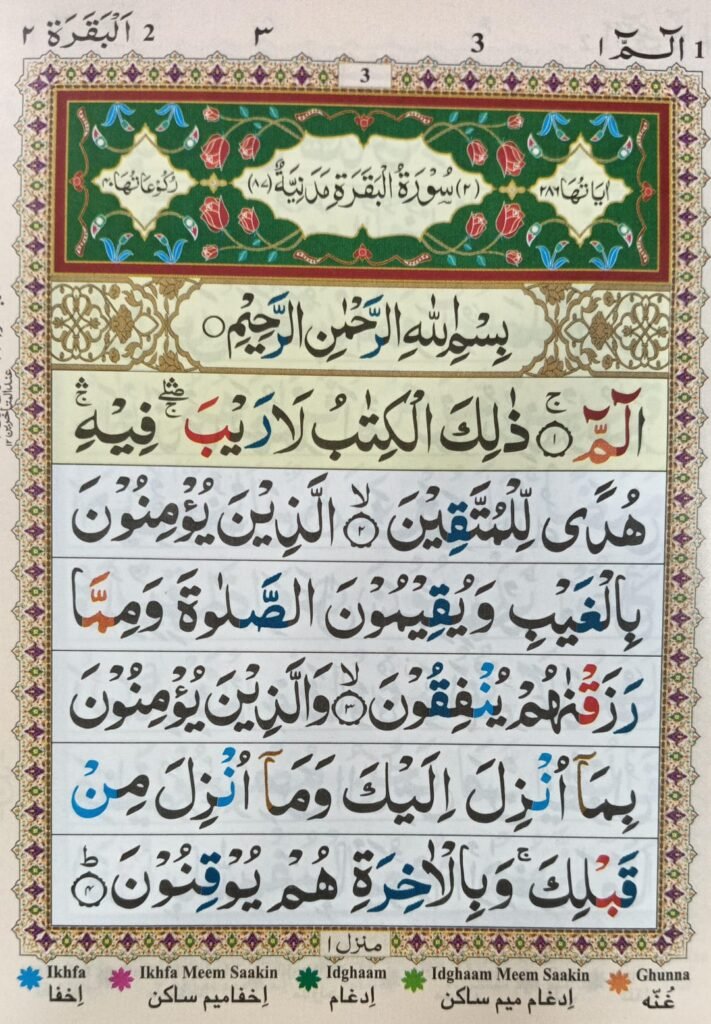 1 الٓـمّٓ ١ 3 ٣ 2 اَلْبَقَرَة ٢
3
اٰیَاتُهَا ٢٨٦ (٢) سُوْرَةُ الْبَقَرَةِ مَدَنِیَّةٌ (٨٧) رُكُوْعَاتُهَا ٤٠
بِسْمِ اللّٰهِ الرَّحْمٰنِ الرَّحِیْمِ ○
الٓمّٓ ۚ ۝١ ذٰلِكَ الْكِتٰبُ لَا رَیْبَ ۖۛۚ فِیْهِ ۛۚ
هُدًی لِّلْمُتَّقِیْنَ ۙ ۝٢ الَّذِیْنَ یُؤْمِنُوْنَ
بِالْغَیْبِ وَیُقِیْمُوْنَ الصَّلٰوةَ وَمِمَّا
رَزَقْنٰهُمْ یُنْفِقُوْنَ ۙ ۝٣ وَالَّذِیْنَ یُؤْمِنُوْنَ
بِمَاۤ اُنْزِلَ اِلَیْكَ وَمَاۤ اُنْزِلَ مِنْ
قَبْلِكَ ۚ وَبِالْاٰخِرَةِ هُمْ یُوْقِنُوْنَ ؕ ۝٤
منزل ١
Ikhfa Ikhfa Meem Saakin Idghaam Idghaam Meem Saakin Ghunna
اِخفا اِخفامیم ساکن اِدغام اِدغام میم ساکن غُنّه